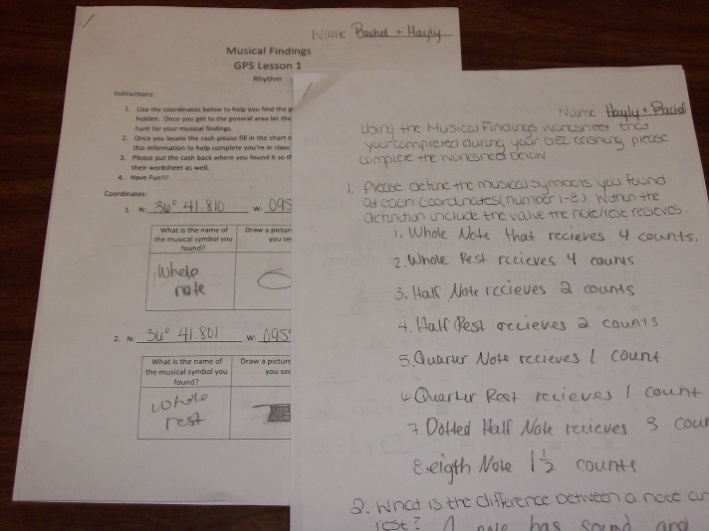 Name Rachel + Hayly
Musical Findings
GPS Lesson 1
Rhythm
Instructions:
1. Use the coordinates below to help you find the
hidden. Once you get to the general area let the
hunt for your musical findings.
2. Once you locate the cash please fill in the chart
this information to help complete you're in class
3. Please put the cash back where you found it so
their worksheet as well.
4. Have Fun!!!
Coordinates:
1. N: 36° 41.810 W: 095
What is the name of
the musical symbol you
found?
Draw a
you
Whole
note
2. N: 36° 41.801 W: 095°
What is the name of
the musical symbol you
found?
Draw a picture
you
whole
rest
Name Hayly + Rachel
Using the Musical Findings worksheet that
you completed during your geo cashing please
complete the worksheet below
1. Please define the musical symbols you found
at each coordinates (number 1-8). Within the
definition include the value the note/rest recieves.
1. Whole Note that recieves 4 counts.
2. Whole Rest recieves 4 counts
3. Half Note recieves 2 counts
4. Half Rest recieves 2 counts
5. Quarter Note recieves 1 count
6 Quarter Rest recieves 1 count
7 Dotted Half Note recieves 3
8. eigth Note 1 1/2 counts
2. What is the difference between a note
rest? A note has sound and